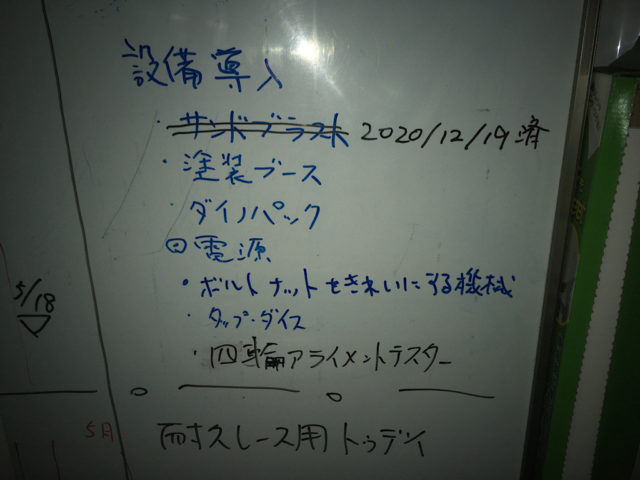 設備導入
・サンドブラスト 2020/12/19 済
・塗装ブース
・ダイノパック
回電源
・ボルトナットをきれいにする機械
・タップ・ダイス
・四輪アライメントテスター
5/18
5月
耐久レース用トゥデイ